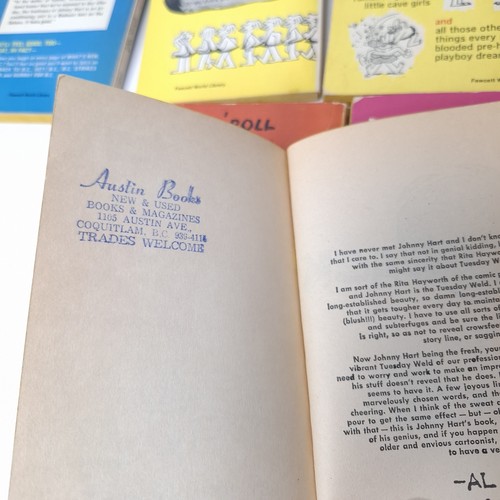 little cave girls
and
all those other
things every
blooded pre-h
playboy drea
Fawcett World Library
Fawcett W
ROLL
Austin Books
NEW & USED
BOOKS & MAGAZINES
1105 AUSTIN AVE.,
COQUITLAM, B.C. 939-4116
TRADES WELCOME
I have never met Johnny Hart and I don't kno
that I care to. I say that not in genial kidding, b
with the same sincerity that Rita Haywor
might say it about Tuesday W
I am sort of the Rita Hayworth of the comic p
and Johnny Hart is the Tuesday Weld. I
long-established beauty, so damn long-establ
that it gets tougher every day to maintai
(blush!!!) beauty. I have to use all sorts of
and subterfuges and be sure the li
is right, so as not to reveal crowsfee
story line, or saggin
Now Johnny Hart being the fresh, you
vibrant Tuesday Weld of our profession
need to worry and work to make an impr
his stuff doesn't reveal that he does.
seems to have it. A few joyous li
marvelously chosen words, and th
cheering. When I think of the sweat
pour to get the same effect — but — ol
with that — this is Johnny Hart's book,
of his genius, and if you happen
older and envious cartoonist,
to have a ve
—AL